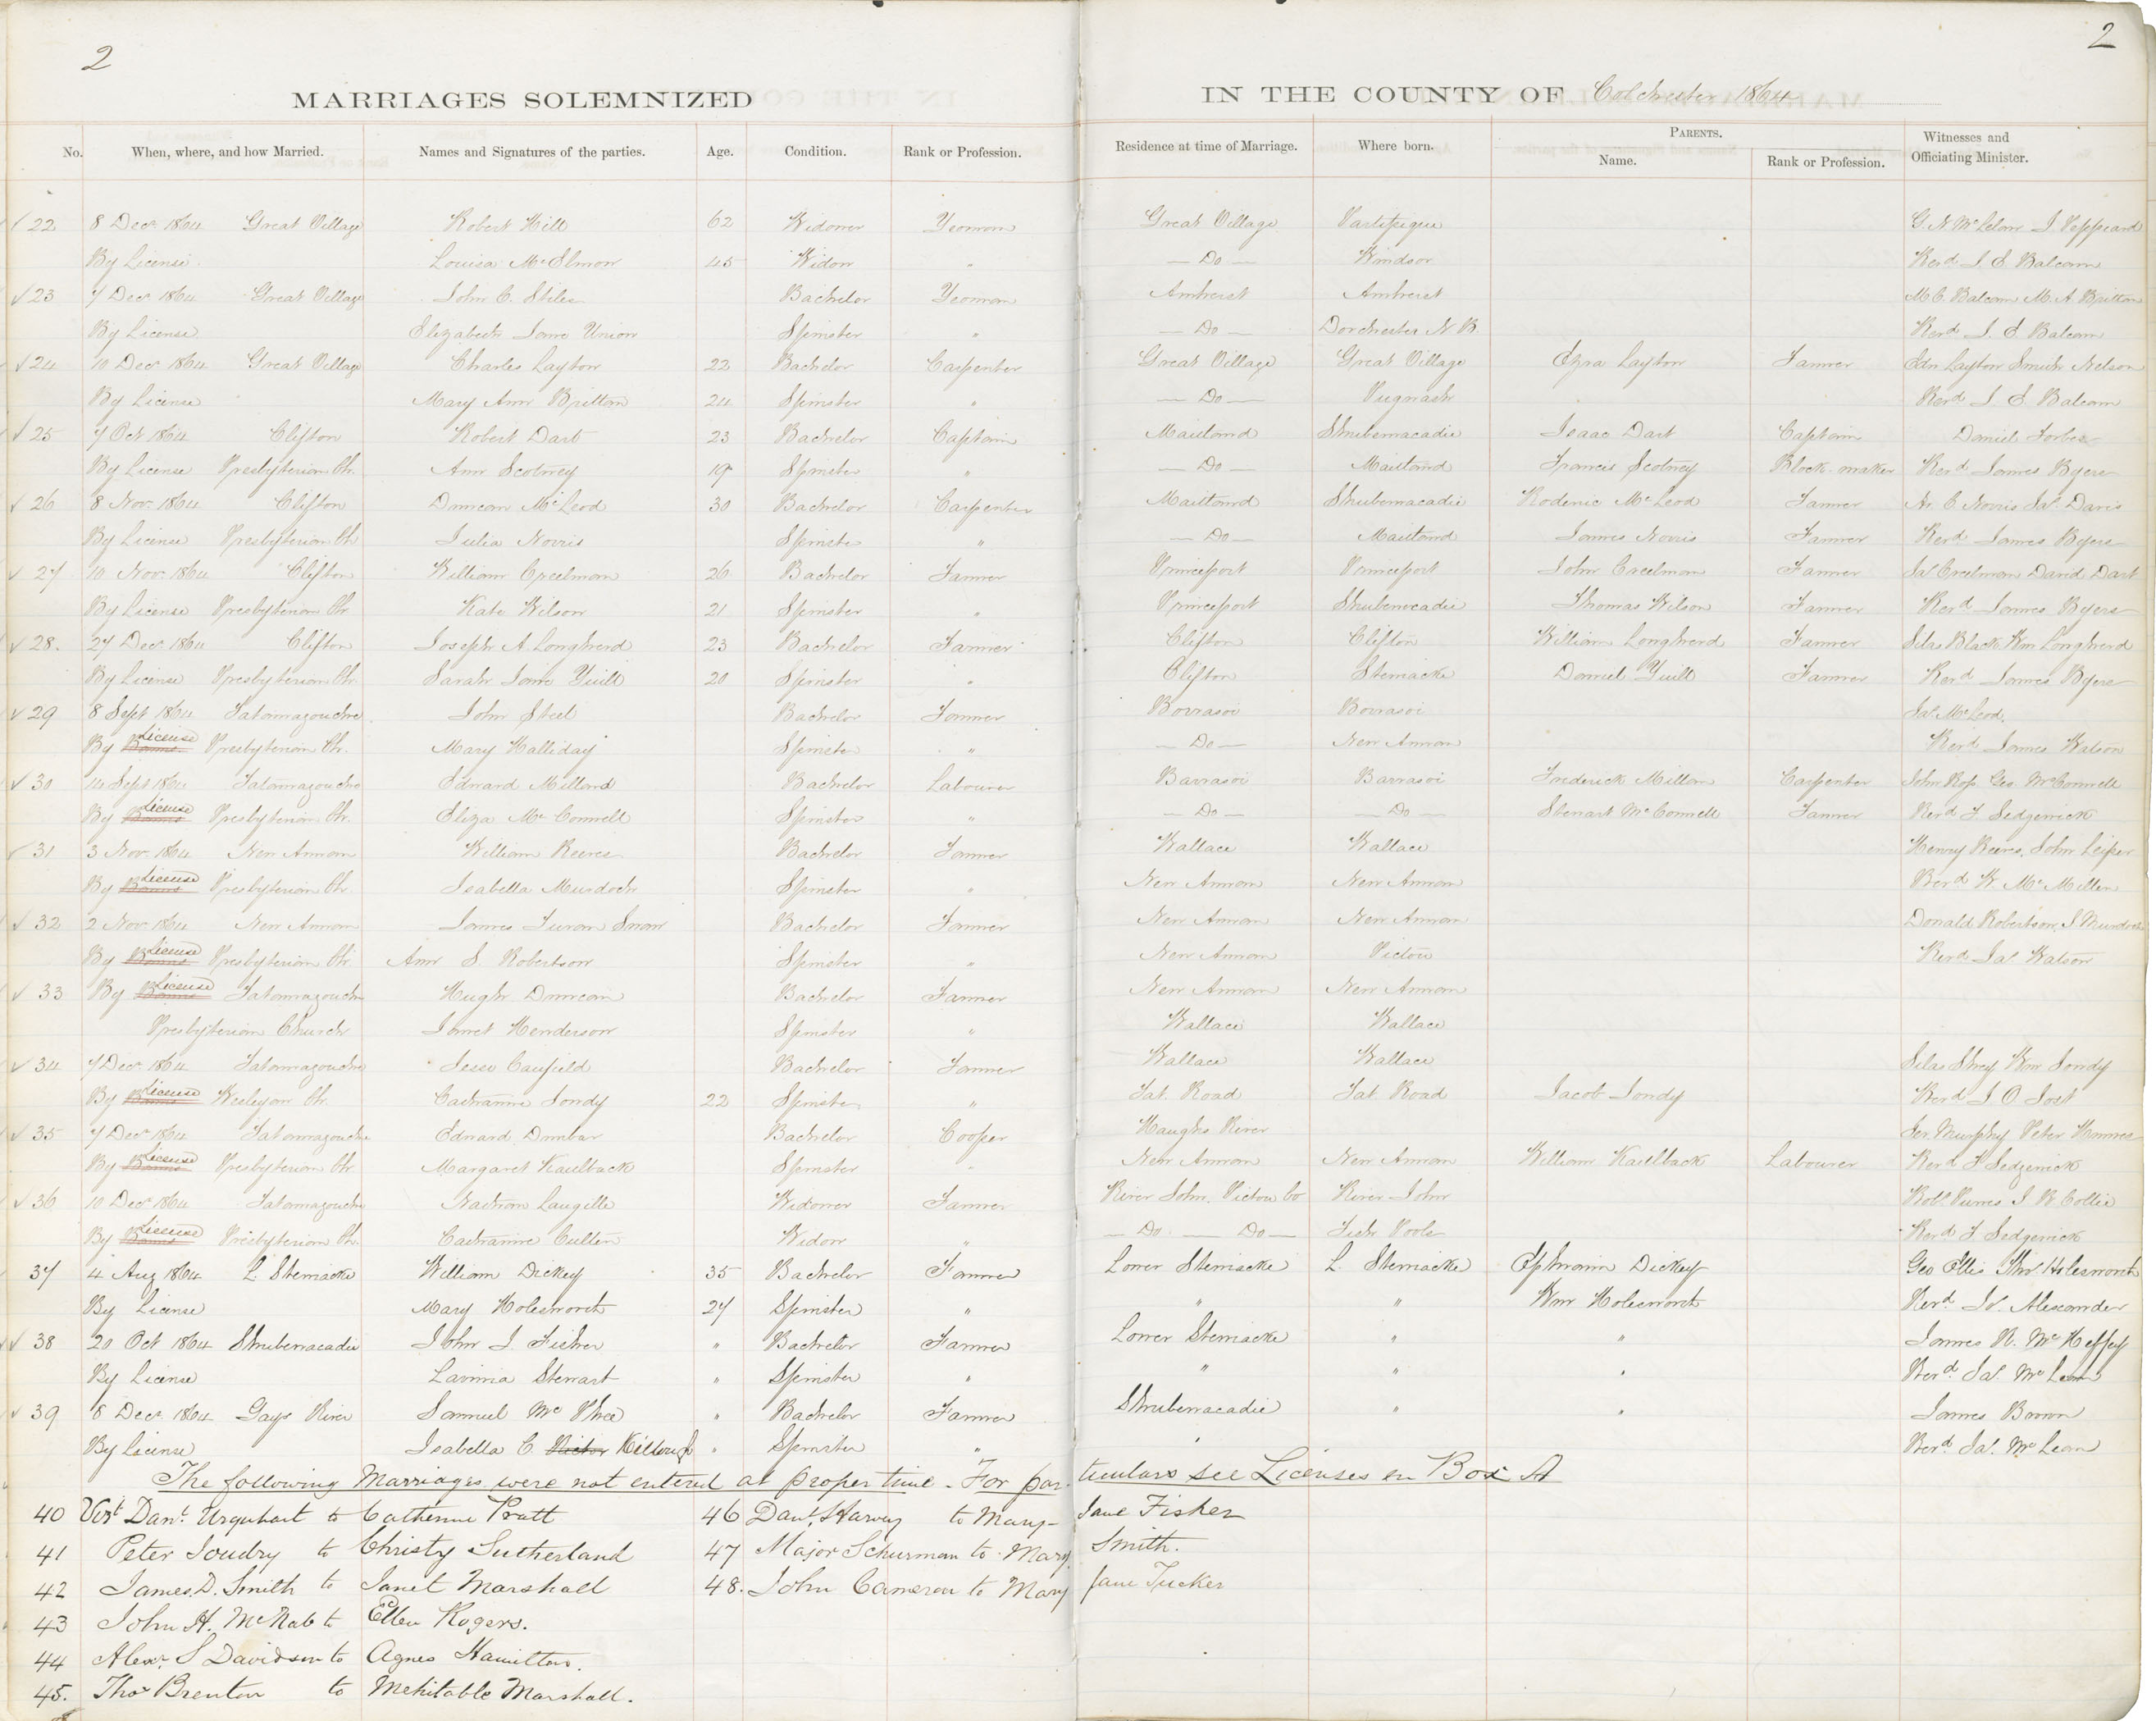 2 2
MARRIAGES SOLEMNIZED IN THE COUNTY OF Colchester 1864
No. When, where, and how Married. Names and Signatures of the parties. Age. Condition. Rank or Profession. Residence at time of Marriage. Where born. PARENTS. Name. Rank or Profession. Witnesses and Officiating Minister.
22 8 Decr 1864 Great Village Robert Hill 62 Widower Yeoman Great Village G. N McLelan J. Peppard
By License Louisa McElmon 45 Widow " — Do — Windsor Revd J. E. Balcam
23 7 Decr 1864 Great Village John C. Stiles Bachelor Yeoman Amherst Amherst M. C. Balcam M. A. Britton
By License Elizabeth Jane Union Spinster " — Do — Dorchester N B Revd J. E. Balcam
24 10 Decr 1864 Great Village Charles Layton 22 Bachelor Carpenter Great Village Great Village Ezra Layton Farmer Edn Layton Smith Nelson
By License Mary Ann Britton 24 Spinster " — Do — Pugwash Revd J. E. Balcam
25 7 Oct 1864 Clifton Robert Dart 23 Bachelor Captain Maitland Shubenacadie Isaac Dart Captain Daniel Forbes
By License Presbyterian Ch. Ann Scotney 19 Spinster " — Do — Maitland Francis Scotney Block maker Revd James Byers
26 8 Nov. 1864 Clifton Duncan McLeod 30 Bachelor Carpenter Maitland Shubenacadie Roderic McLeod Farmer C Norris Jas. Davis
By License Presbyterian Ch Julia Norris Spinster " — Do — Maitland James Norris Farmer Revd James Byers
27 10 Nov. 1864 Clifton William Creelman 26 Bachelor Farmer Princeport Princeport John Creelman Farmer Jas Creelman David Dart
By License Presbyterian Ch. Kate Wilson 21 Spinster " Princeport Shubenacadie Thomas Wilson Farmer Revd James Byers
28. 27 Decr 1864 Clifton Joseph A. Longherd 23 Bachelor Farmer Clifton Clifton William Longherd Farmer Silas Black Wm Longherd
By License Presbyterian Ch. Sarah Jane Yuill 20 Spinster " Clifton Stewiacke Daniel Yuill Farmer Revd James Byers
29 8 Sept 1864 Tatamagouche John Steel Bachelor Farmer Jas. McLeod.
By Banns License Presbyterian Ch. Mary Halliday Spinster " — Do — New Annan Revd James Watson
30 14 Sept 1864 Tatamagouche Edward Millard Bachelor Labourer Barrasoi Barrasoi Frederick Millard Carpenter John Ross Geo. McConnell
By Banns License Presbyterian Ch. Eliza McConnell Spinster " — Do — — Do — Stewart McConnell Farmer Revd T. Sedgewick
31 3 Nov. 1864 New Annan William Reeves Bachelor Farmer Wallace Wallace Henry Reeves, John Leiper
By Banns License Presbyterian Ch. Isabella Murdoch Spinster " New Annan New Annan Revd W. McMillen
32 2 Nov 1864 New Annan James Swan Bachelor Farmer New Annan New Annan Donald Robertson
By Banns License Presbyterian Ch. Ann S. Robertson Spinster " New Annan Pictou Revd Jas. Watson
33 By Banns License Tatamagouche Hugh Duncan Bachelor Farmer New Annan New Annan
Presbyterian Church Janet Henderson Spinster " Wallace Wallace
34 7 Decr 1864 Tatamagouche Jesse Canfield Bachelor Farmer Wallace Wallace
By Banns License Wesleyan Ch. Catharine 22 Spinster " Tat. Road Tat. Road Jacob Revd J. O. Jost
35 7 Decr 1864 Tatamagouche Edward Dunbar Bachelor Cooper Haughs River Murphy Peter
By Banns License Presbyterian Ch. Margaret Kaulback Spinster " New Annan New Annan William Kaulback Labourer Revd T Sedgewick
36 10 Decr 1864 Tatamagouche Nathan Langille Widower Farmer River John, Pictou Co River John Robt Purves
By Banns License Presbyterian Ch. Catharine Cullen Widow " — Do — Do — Fish Pools Revd T Sedgewick
37 4 Aug 1864 L. Stewiacke William Dickey 35 Bachelor Farmer Lower Stewiacke L. Stewiacke Ephraim Dickey Geo Ellis Thos Holesworth
By License Mary Holesworth 27 Spinster " " " Wm Holesworth Revd Jas. Alexander
38 20 Oct 1864 Shubenacadie John J. Fisher " Bachelor Farmer Lower Stewiacke " " James R. McHeffey
By License Lavinia Stewart " Spinster " " " " Revd. Jas. McLean
39 8 Decr 1864 Gays River Samuel McPhee " Bachelor Farmer Shubenacadie " " James Brown
By License Isabella C. Victor Killough " Spinster " " Revd. Jas. McLean
The following Marriages were not entered at proper time. For particulars see Licenses in Box A
40 Danl. Urquhart to Catherine Pratt 46 Danl. Harvey to Mary Jane Fisher
41 Peter Joudry to Christy Sutherland 47 Major Schurman to Mary Smith.
42 James D. Smith to Janet Marshall 48. John Cameron to Mary Jane Tucker
43 John H. McNab to Ellen Rogers.
44 Alexr. S Davidson to Agnes Hamilton.
45. Thos Brenton to Mehitable Marshall.